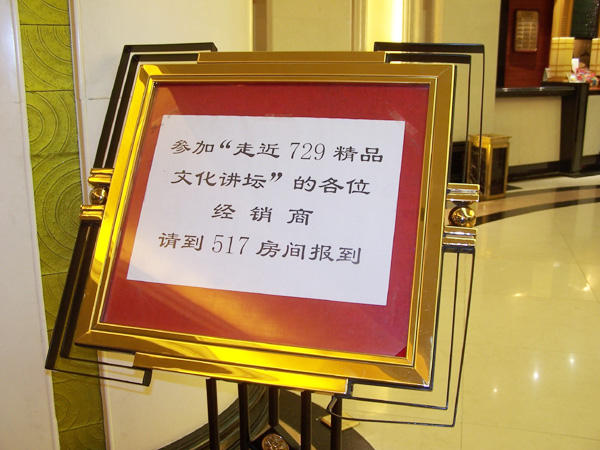 参加“走近 729 精品
文化讲坛”的各位
经销商
请到 517 房间报到